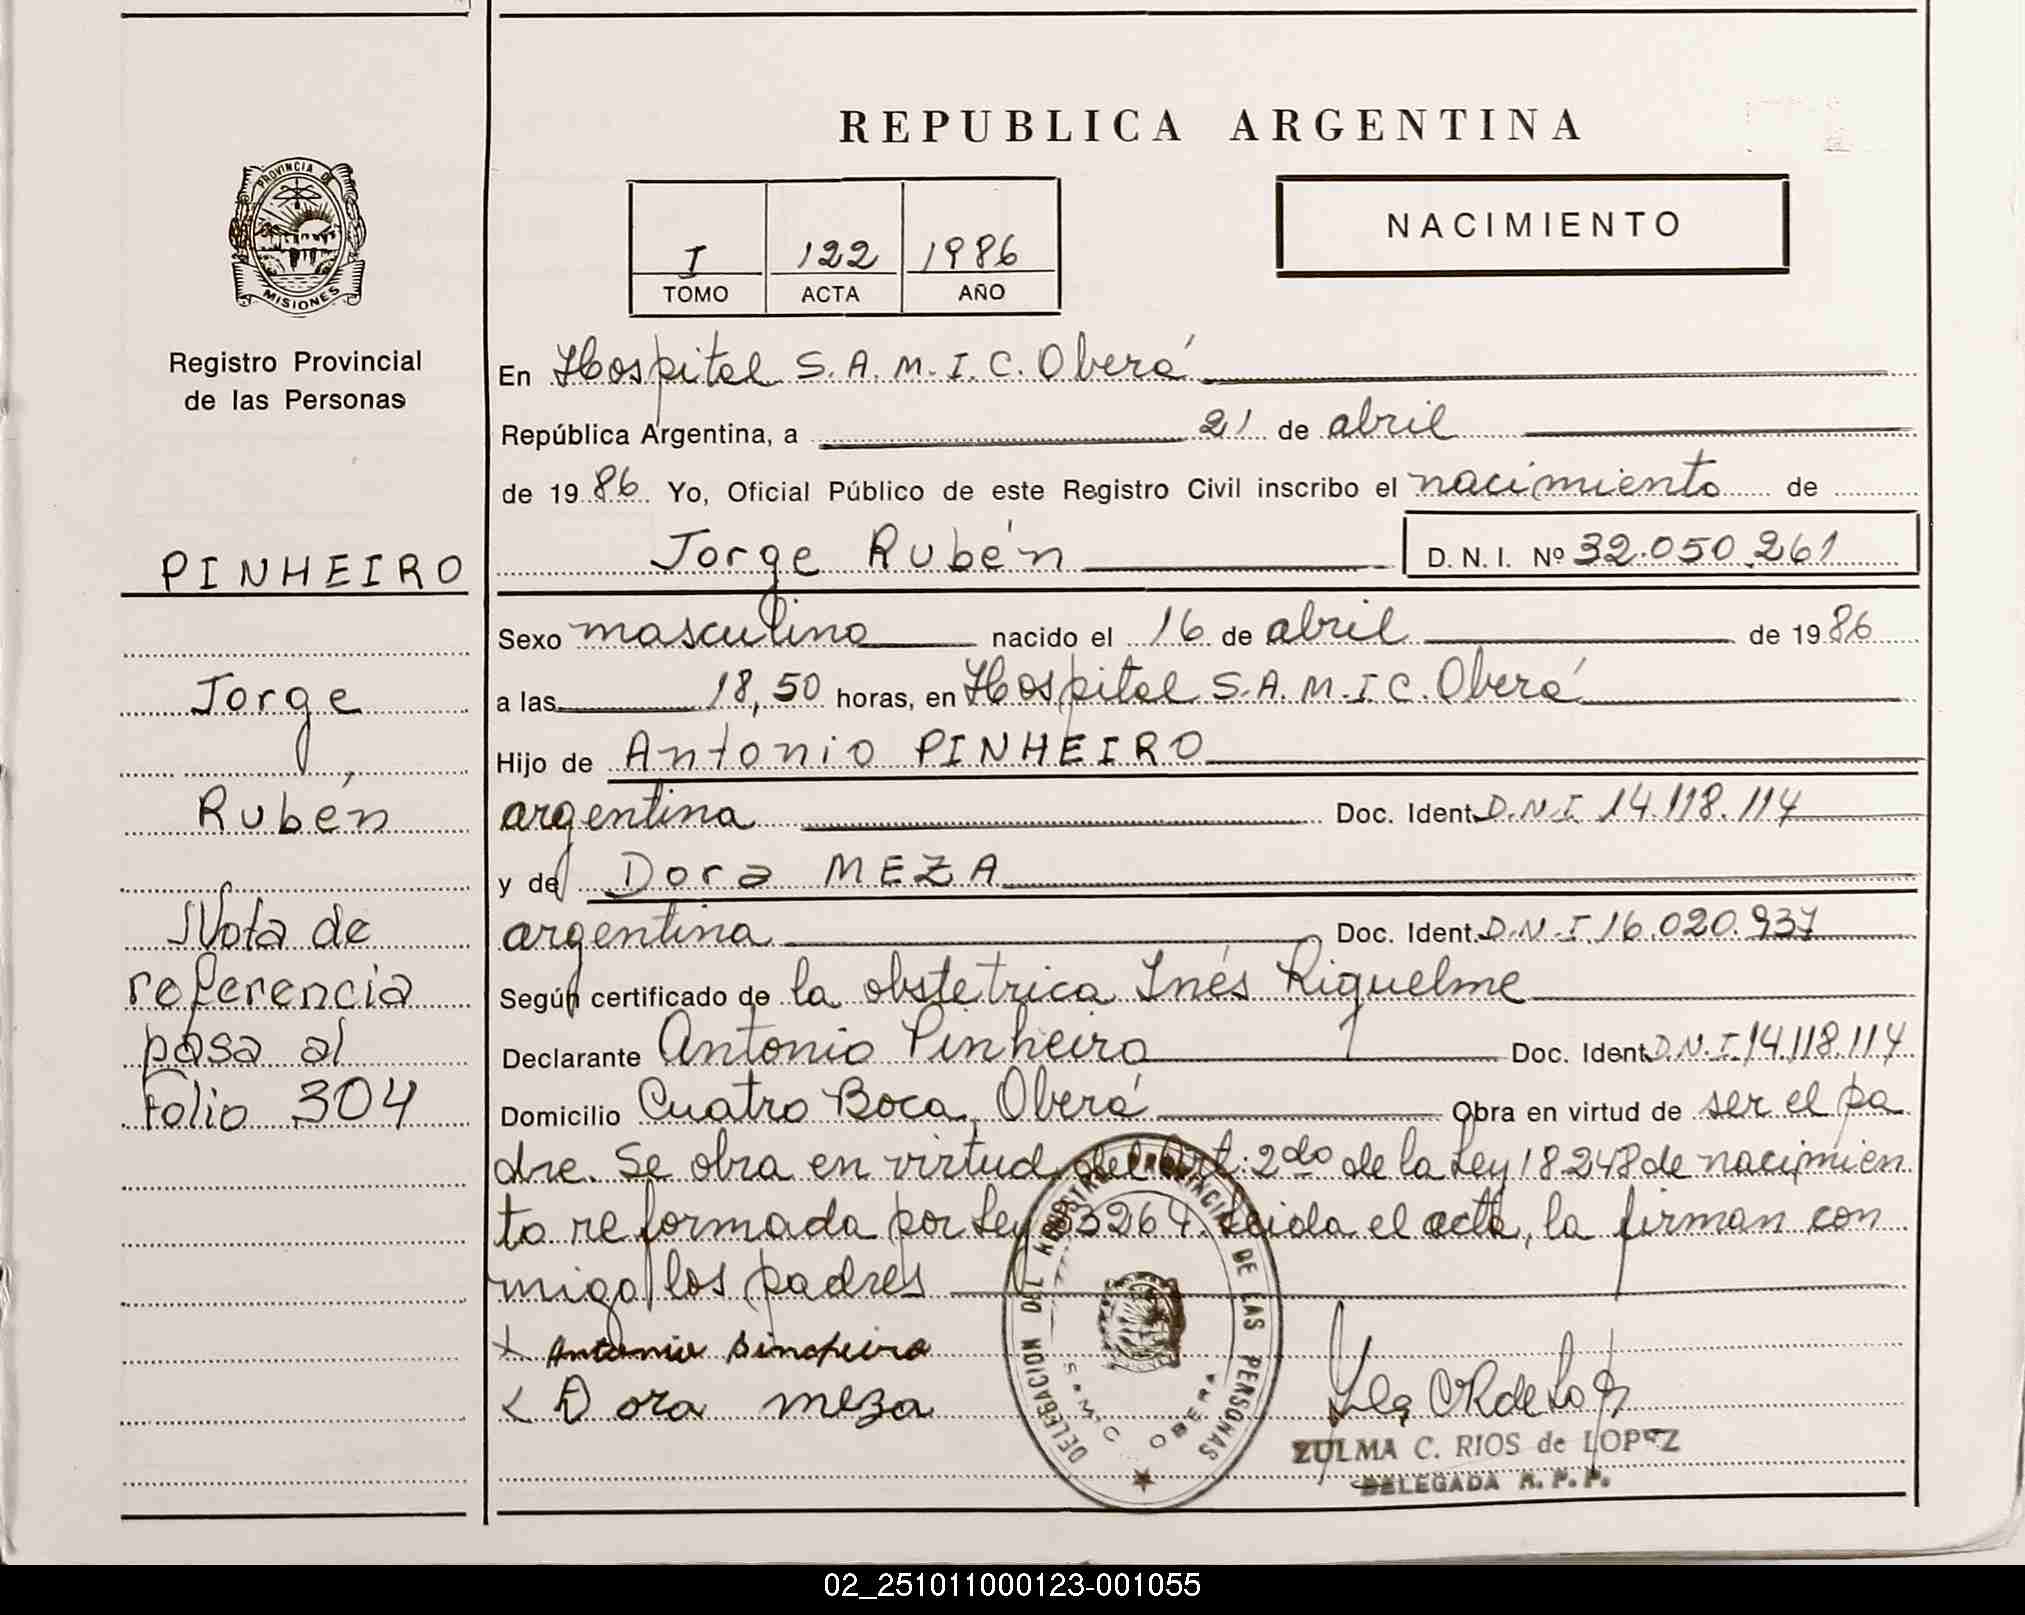 REPUBLICA ARGENTINA
PROVINCIA DE
MISIONES
Registro Provincial
de las Personas
I 122 1986
TOMO ACTA AÑO
NACIMIENTO
En Hospital S.A.M.I.C. Oberá
República Argentina, a 21 de abril
de 1986 Yo, Oficial Público de este Registro Civil inscribo el nacimiento de
Jorge Rubén D. N. I. Nº 32.050.261
PINHEIRO
Jorge
Rubén
Nota de
referencia
pasa al
Folio 304
Sexo masculino nacido el 16 de abril de 1986
a las 18,50 horas, en Hospital S.A.M.I.C. Oberá
Hijo de Antonio PINHEIRO
argentina Doc. Ident. D.N.I. 14.118.114
y de Dora MEZA
argentina Doc. Ident. D.N.I. 16.020.937
Según certificado de la obstetrica Inés Riquelme
Declarante Antonio Pinheiro Doc. Ident. D.N.I. 14.118.114
Domicilio Cuatro Boca, Oberá Obra en virtud de ser el pa
dre. Se obra en virtud del Art: 2do de la Ley 18248 de nacimien
to reformada por Ley 23264. Leida el acta, la firman con
migo los padres
Antonio Pinheiro
Dora meza
DELEGACION DEL REGISTRO PROVINCIAL DE LAS PERSONAS
S.A.M.I.C. OBERA
ZULMA C. RIOS de LOPEZ
DELEGADA R. P. P.
02_251011000123-001055